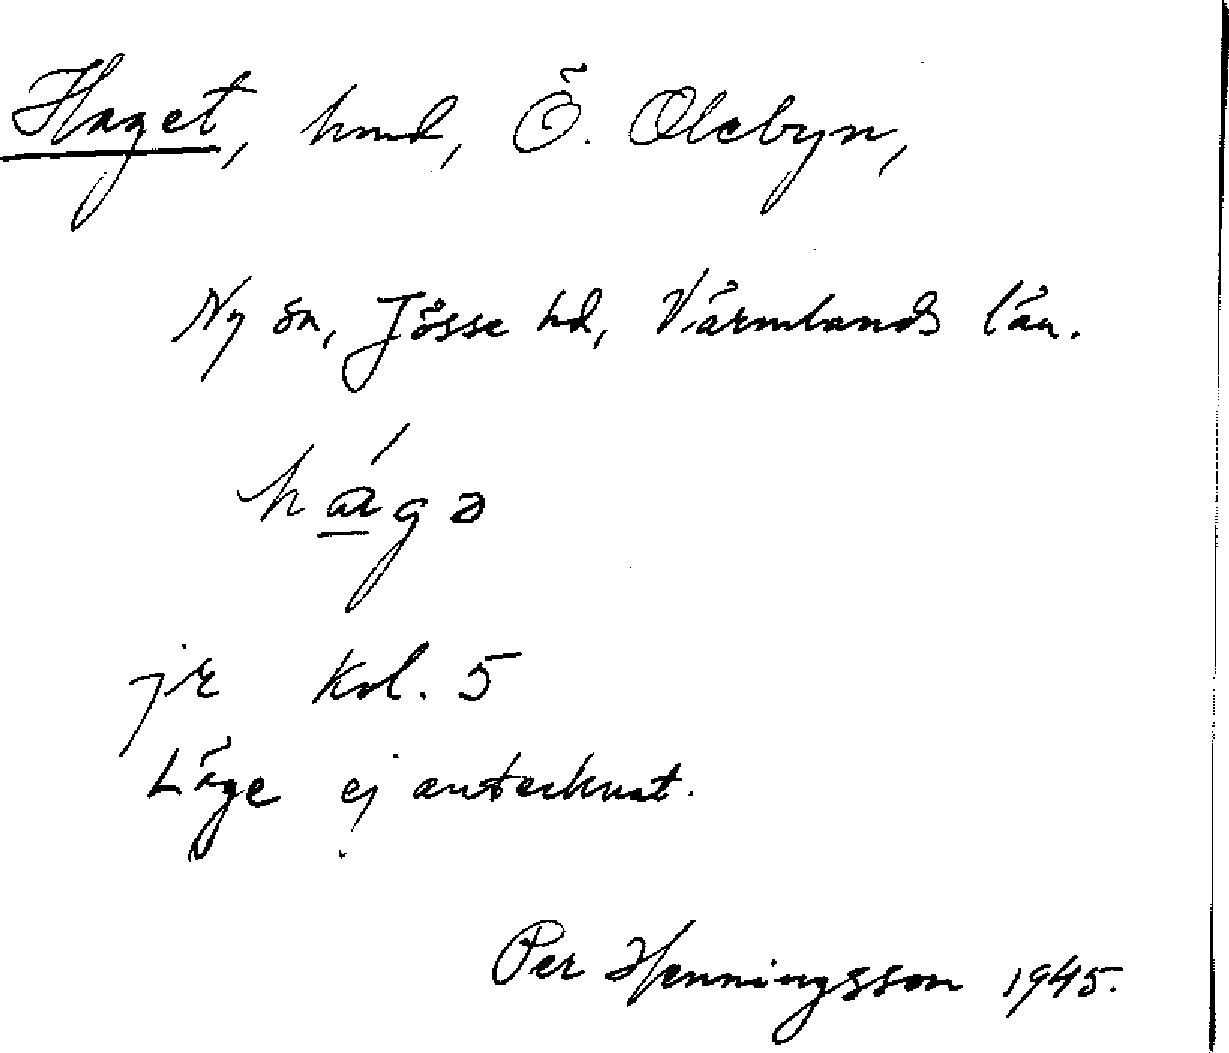 Haget, hmd, Ö. Olebyn,
Ny sn, Jösse hd, Värmlands län.
há̱gə
jr kol. 5
Läge ej antecknat.
Per Henningsson 1945.